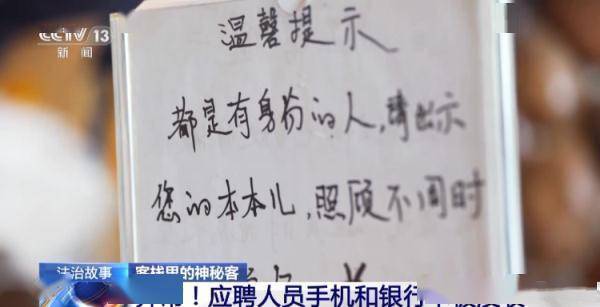 CCTV 13
新闻
温馨提示
都是有身份的人,请出示
您的本本儿,照顾不周时
法治故事 客栈里的神秘客
！应聘人员手机和银行